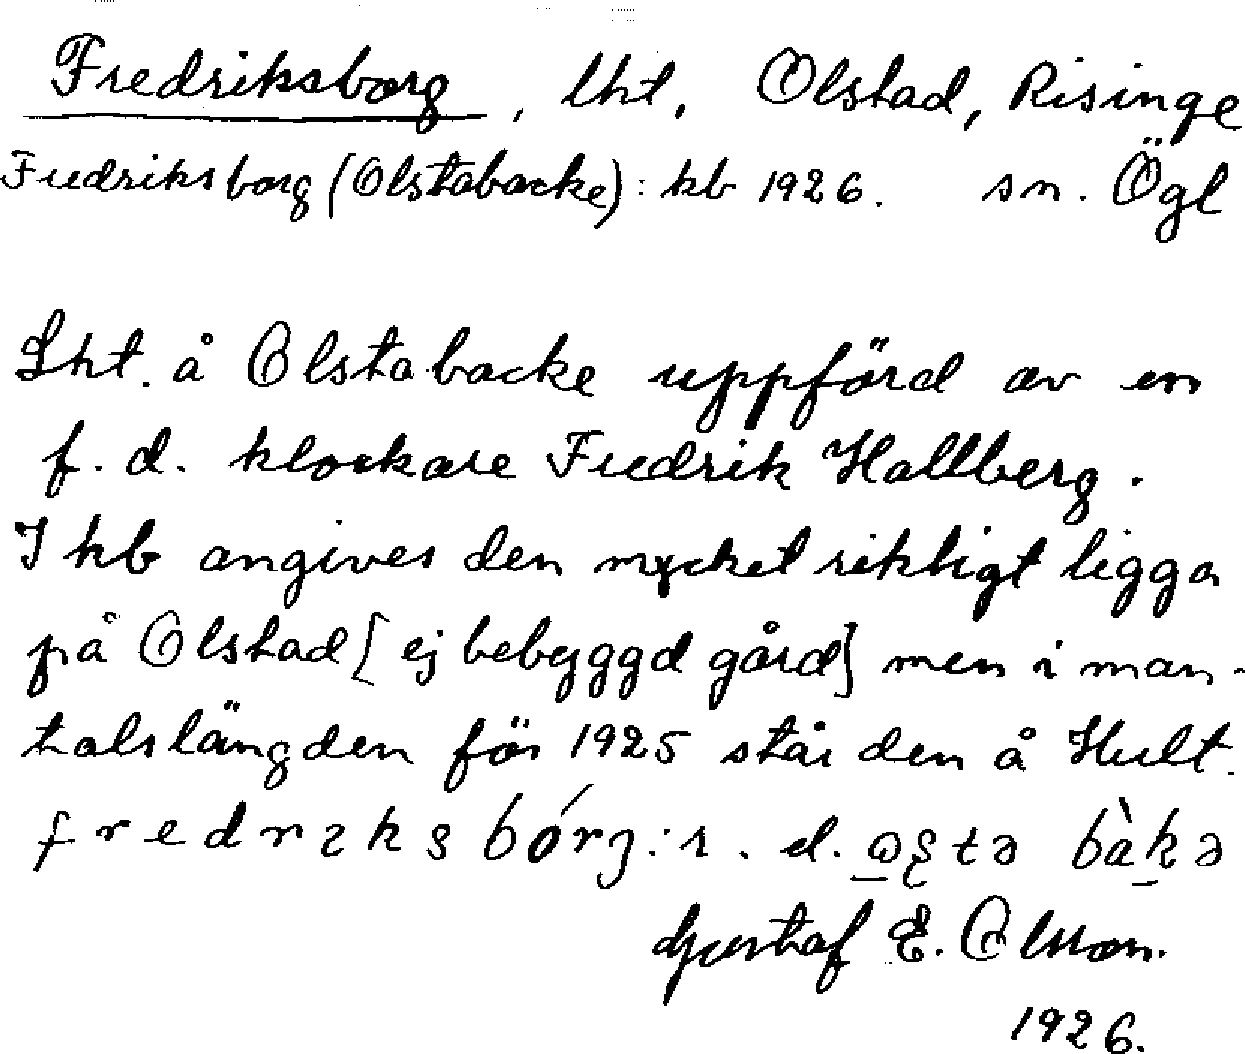 Fredriksborg, lht, Olstad, Risinge
Fredriksborg (Olstabacke): kb 1926. sn. Ögl
Lht. å Olstabacke uppförd av en
f. d. klockare Fredrik Hallberg.
I kb angives den mycket riktigt ligga
på Olstad [ej bebyggd gård] men i man-
talslängden för 1925 står den å Hult.
Gustaf E. Olsson.
1926.